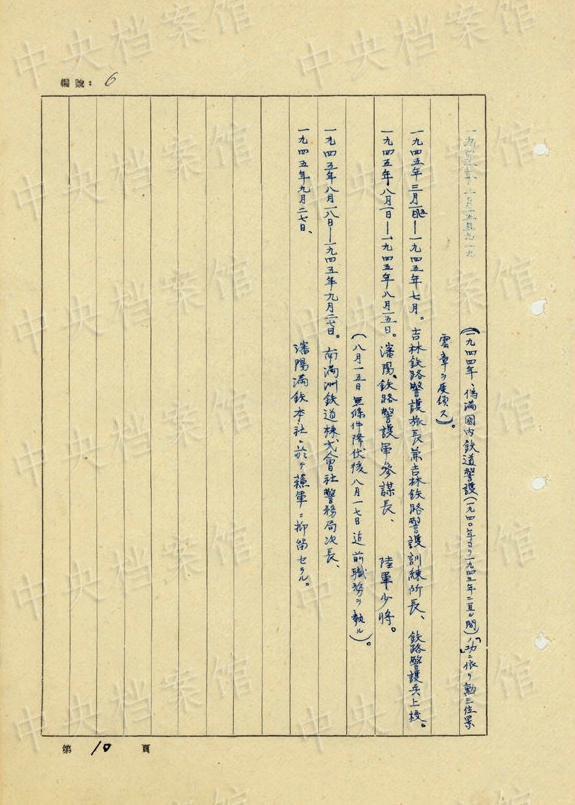 編號：6
（一九四四年、偽滿國内鉄道警護（一九四〇年ヨリ一九四三年ニ至ル間）ノ「功」ニ依リ勲三位景
雲章ヲ受領ス）。
一九四五年三月一日—一九四五年七月。吉林鉄路警護旅長兼吉林鉄路警護訓練所長、鉄路警護兵上校。
一九四五年八月一日—一九四五年八月一五日。瀋陽、鉄路警護軍参謀長、陸軍少将。
（八月一五日無條件降伏後八月一七日迄前職務ヲ執ル）。
一九四五年八月一八日—一九四五年九月二七日。南満洲鉄道株式會社警務局次長、
一九四五年九月二七日、瀋陽満鉄本社ニ於テ蘇軍ニ抑留セラル。
第 10 頁
中央档案馆